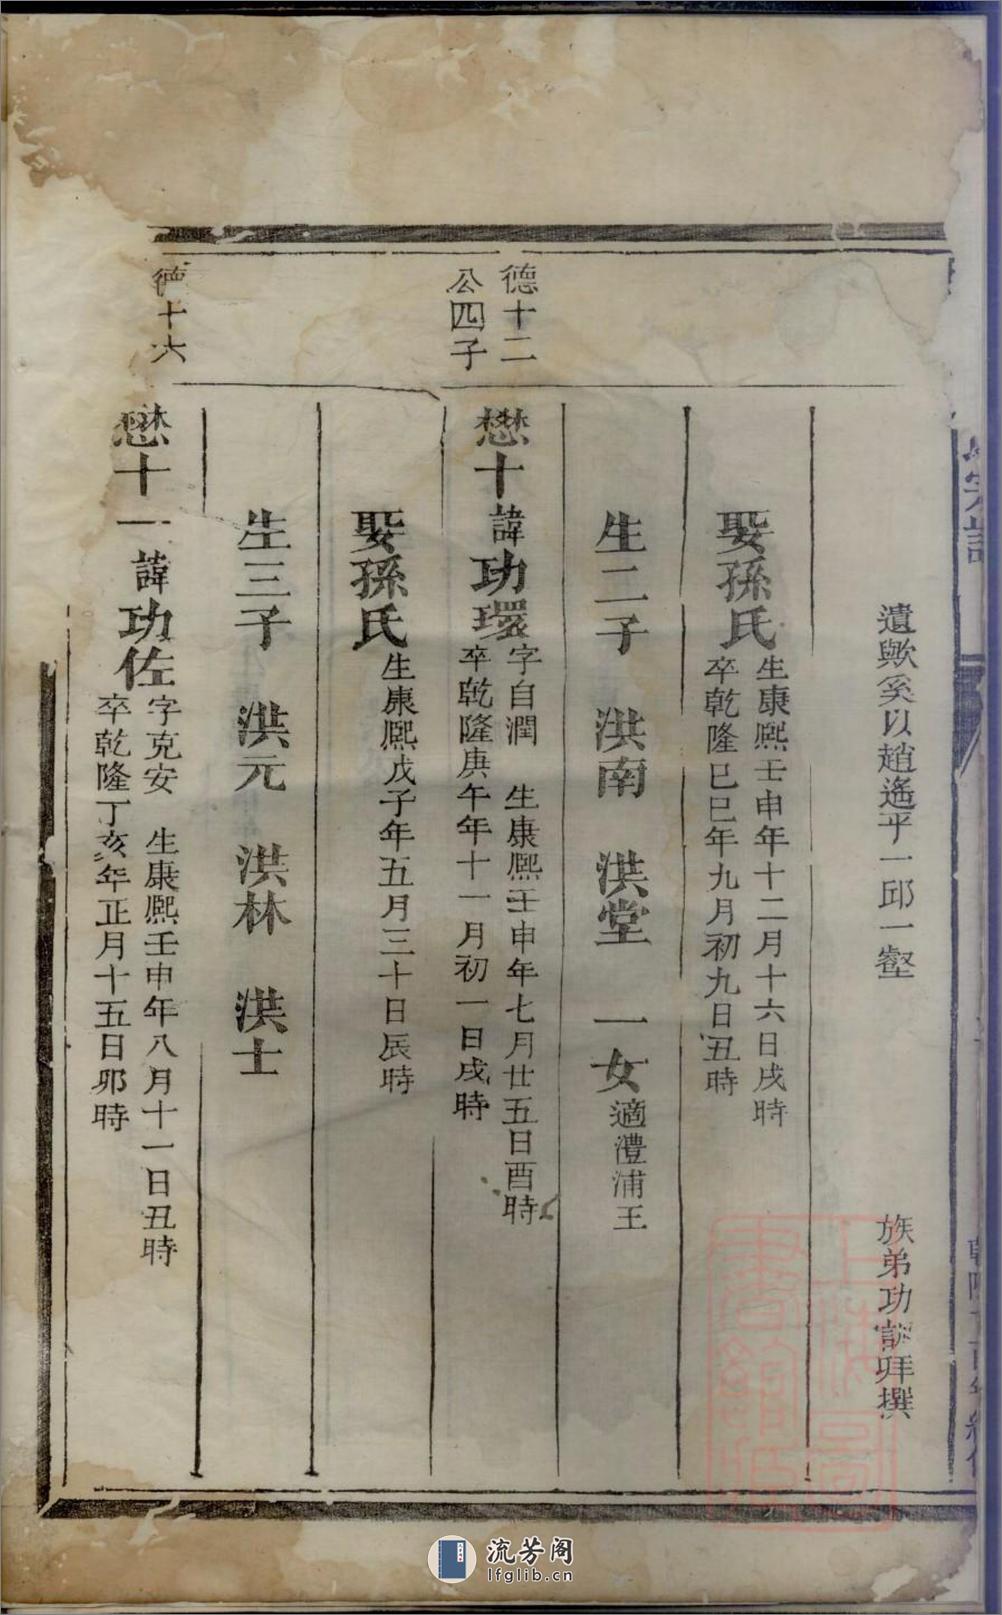 宗譜
遺歟奚以趙遙乎一邱一壑
族弟功談拜撰
娶孫氏
生康熙壬申年十二月十六日戌時
卒乾隆巳巳年九月初九日丑時
生二子 洪南 洪堂 一女適澧浦王
德十二
公四子
懋十諱功環
字自潤 生康熙壬申年七月廿五日酉時
卒乾隆庚午年十一月初一日戌時
娶孫氏
生康熙戊子年五月三十日辰時
生三子 洪元 洪林 洪士
德十六
懋十一諱功佐
字克安 生康熙壬申年八月十一日丑時
卒乾隆丁亥年正月十五日卯時
上海圖
書館藏
流芳阁
lfglib.cn